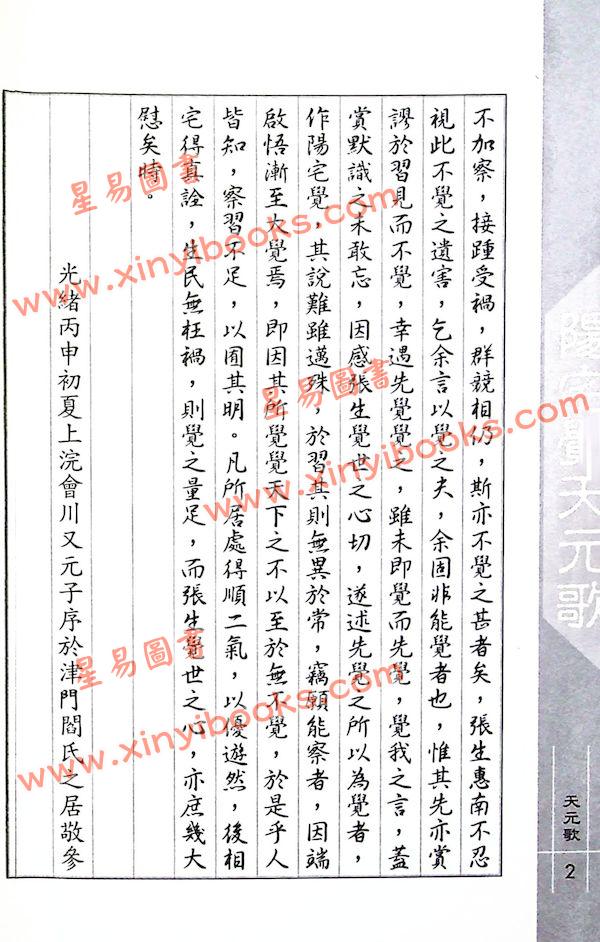 不加察，接踵受禍，群競相仍，斯亦不覺之甚者矣，張生惠南不忍
視此不覺之遺害，乞余言以覺之夫，余固非能覺者也，惟其先亦嘗
謬於習見而不覺，幸遇先覺覺之，雖未即覺而先覺，覺我之言，蓋
嘗默識之未敢忘，因感張生覺世之心切，遂述先覺之所以為覺者，
作陽宅覺，其說難雖邁殊，於習其則無異於常，竊願能察者，因端
啟悟漸至大覺焉，即因其所覺覺天下之不以至於無不覺，於是乎人
皆知，察習不足，以囿其明。凡所居處得順二氣，以優遊然，後相
宅得真詮，生民無枉禍，則覺之量足，而張生覺世之心，亦庶幾大
慰矣時。
光緒丙申初夏上浣會川又元子序於津門閻氏之居敬參
陽宅覺天元歌
天元歌
2
星易圖書
www.xinyibooks.com
星易圖書
www.xinyibooks.com
星易圖書
www.xinyibooks.com